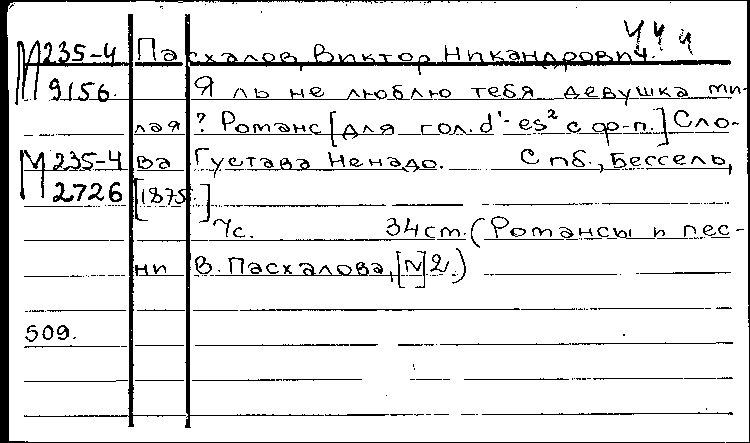 444
М 235-4 Пасхалов, Виктор Никандрович.
9156. Я ль не люблю тебя девушка ми-
лая? Романс [для гол. d'-es² с ф-п.] Сло-
М 235-4 ва Густава Ненадо. Спб., Бессель,
2726 [1875.]
7с. 34 см. (Романсы и пес-
ни В. Пасхалова, [N] 2.)
509.